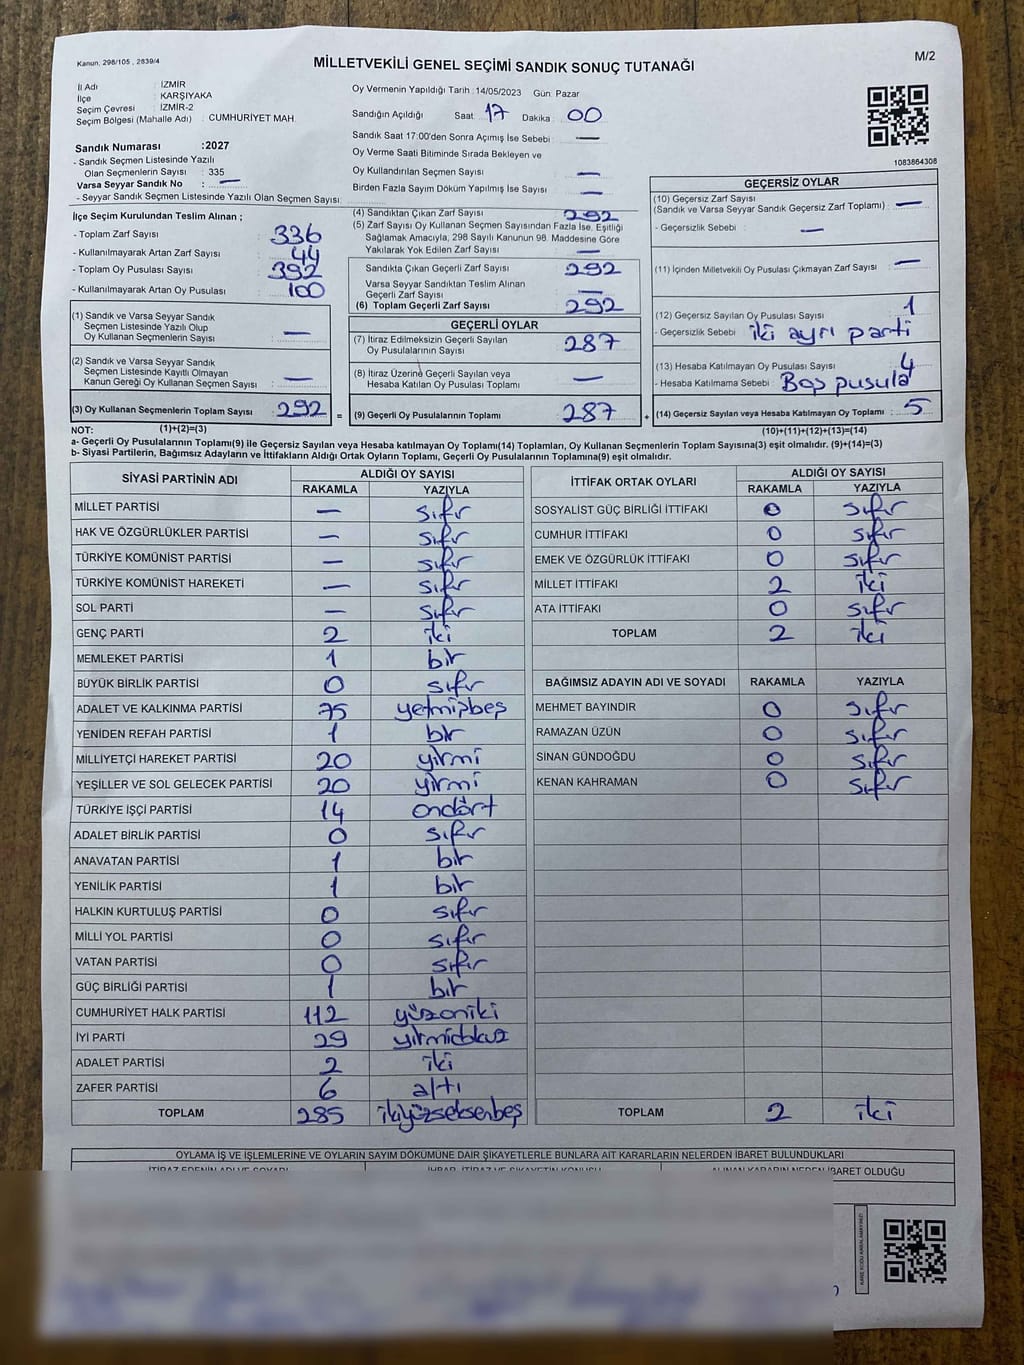 Kanun, 298/105 , 2839/4
MİLLETVEKİLİ GENEL SEÇİMİ SANDIK SONUÇ TUTANAĞI
M/2
İl Adı : İZMİR
İlçe : KARŞIYAKA
Seçim Çevresi : İZMİR-2
Seçim Bölgesi (Mahalle Adı) : CUMHURİYET MAH.
Sandık Numarası :2027
- Sandık Seçmen Listesinde Yazılı
Olan Seçmenlerin Sayısı : 335
Varsa Seyyar Sandık No : —
- Seyyar Sandık Seçmen Listesinde Yazılı Olan Seçmen Sayısı:
Oy Vermenin Yapıldığı Tarih : 14/05/2023 Gün: Pazar
Sandığın Açıldığı Saat 17 Dakika : 00
Sandık Saat 17:00'den Sonra Açımış İse Sebebi : —
Oy Verme Saati Bitiminde Sırada Bekleyen ve
Oy Kullandırılan Seçmen Sayısı —
Birden Fazla Sayım Döküm Yapılmış İse Sayısı —
1083864308
İlçe Seçim Kurulundan Teslim Alınan ;
- Toplam Zarf Sayısı : 336
- Kullanılmayarak Artan Zarf Sayısı : 44
- Toplam Oy Pusulası Sayısı : 392
- Kullanılmayarak Artan Oy Pusulası : 100
(1) Sandık ve Varsa Seyyar Sandık
Seçmen Listesinde Yazılı Olup
Oy Kullanan Seçmenlerin Sayısı : —
(2) Sandık ve Varsa Seyyar Sandık
Seçmen Listesinde Kayıtlı Olmayan
Kanun Gereği Oy Kullanan Seçmen Sayısı : —
(3) Oy Kullanan Seçmenlerin Toplam Sayısı : 292 =
(4) Sandıktan Çıkan Zarf Sayısı : 292
(5) Zarf Sayısı Oy Kullanan Seçmen Sayısından Fazla İse, Eşitliği
Sağlamak Amacıyla, 298 Sayılı Kanunun 98. Maddesine Göre
Yakılarak Yok Edilen Zarf Sayısı : —
Sandıkta Çıkan Geçerli Zarf Sayısı : 292
Varsa Seyyar Sandıktan Teslim Alınan
Geçerli Zarf Sayısı : —
(6) Toplam Geçerli Zarf Sayısı : 292
GEÇERLİ OYLAR
(7) İtiraz Edilmeksizin Geçerli Sayılan
Oy Pusulalarının Sayısı : 287
(8) İtiraz Üzerine Geçerli Sayılan veya
Hesaba Katılan Oy Pusulası Toplamı : —
(9) Geçerli Oy Pusulalarının Toplamı : 287 +
GEÇERSİZ OYLAR
(10) Geçersiz Zarf Sayısı
(Sandık ve Varsa Seyyar Sandık Geçersiz Zarf Toplamı) : —
- Geçersizlik Sebebi : —
(11) İçinden Milletvekili Oy Pusulası Çıkmayan Zarf Sayısı : —
(12) Geçersiz Sayılan Oy Pusulası Sayısı : 1
- Geçersizlik Sebebi : iki ayrı parti
(13) Hesaba Katılmayan Oy Pusulası Sayısı : 4
- Hesaba Katılmama Sebebi : Boş pusula
(14) Geçersiz Sayılan veya Hesaba Katılmayan Oy Toplamı : 5
NOT: (1)+(2)=(3)
(10)+(11)+(12)+(13)=(14)
a- Geçerli Oy Pusulalarının Toplamı(9) ile Geçersiz Sayılan veya Hesaba katılmayan Oy Toplamı(14) Toplamları, Oy Kullanan Seçmenlerin Toplam Sayısına(3) eşit olmalıdır. (9)+(14)=(3)
b- Siyasi Partilerin, Bağımsız Adayların ve İttifakların Aldığı Ortak Oyların Toplamı, Geçerli Oy Pusulalarının Toplamına(9) eşit olmalıdır.
SİYASİ PARTİNİN ADI ALDIĞI OY SAYISI
RAKAMLA YAZIYLA
MİLLET PARTİSİ — sıfır
HAK VE ÖZGÜRLÜKLER PARTİSİ — sıfır
TÜRKİYE KOMÜNİST PARTİSİ — sıfır
TÜRKİYE KOMÜNİST HAREKETİ — sıfır
SOL PARTİ — sıfır
GENÇ PARTİ 2 iki
MEMLEKET PARTİSİ 1 bir
BÜYÜK BİRLİK PARTİSİ 0 sıfır
ADALET VE KALKINMA PARTİSİ 75 yetmişbeş
YENİDEN REFAH PARTİSİ 1 bir
MİLLİYETÇİ HAREKET PARTİSİ 20 yirmi
YEŞİLLER VE SOL GELECEK PARTİSİ 20 yirmi
TÜRKİYE İŞÇİ PARTİSİ 14 ondört
ADALET BİRLİK PARTİSİ 0 sıfır
ANAVATAN PARTİSİ 1 bir
YENİLİK PARTİSİ 1 bir
HALKIN KURTULUŞ PARTİSİ 0 sıfır
MİLLİ YOL PARTİSİ 0 sıfır
VATAN PARTİSİ 0 sıfır
GÜÇ BİRLİĞİ PARTİSİ 1 bir
CUMHURİYET HALK PARTİSİ 112 yüzoniki
İYİ PARTİ 29 yirmidokuz
ADALET PARTİSİ 2 iki
ZAFER PARTİSİ 6 altı
TOPLAM 285 ikiyüzseksenbeş
İTTİFAK ORTAK OYLARI ALDIĞI OY SAYISI
RAKAMLA YAZIYLA
SOSYALİST GÜÇ BİRLİĞİ İTTİFAKI 0 sıfır
CUMHUR İTTİFAKI 0 sıfır
EMEK VE ÖZGÜRLÜK İTTİFAKI 0 sıfır
MİLLET İTTİFAKI 2 iki
ATA İTTİFAKI 0 sıfır
TOPLAM 2 iki
BAĞIMSIZ ADAYIN ADI VE SOYADI RAKAMLA YAZIYLA
MEHMET BAYINDIR 0 sıfır
RAMAZAN ÜZÜN 0 sıfır
SİNAN GÜNDOĞDU 0 sıfır
KENAN KAHRAMAN 0 sıfır
TOPLAM 2 iki
OYLAMA İŞ VE İŞLEMLERİNE VE OYLARIN SAYIM DÖKÜMÜNE DAİR ŞİKAYETLERLE BUNLARA AİT KARARLARIN NELERDEN İBARET BULUNDUKLARI
İTİRAZ EDENİN ADI VE SOYADI İHBAR, İTİRAZ VE ŞİKAYETİN KONUSU ALINAN KARARIN NEDEN İBARET OLDUĞU
KARE KODU KARALAMAYINIZ!